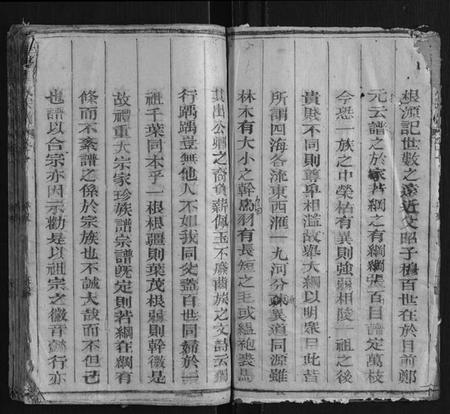 根源記世數之遠近父昭子穆百世在於目前鄭
元云譜之於家若綱之有綱綱張百目譜定萬枝
今恐一族之中榮枯有異則強弱相陵一祖之後
貴賤不同則尊卑相濫故舉大綱以明衆目此昔
所謂四海各流東西滙一九河分派異道同源雖
林木有大小之幹鳥羽有長短之毛或縕袍裘馬
其出公卿之裔負薪佩玉不廢齒族之文詩云獨
行踽踽豈無他人不如我同父蓋百世同婦於一
祖千葉同本乎一根根疆則葉茂根弱則幹微是
故禮重大宗家珍族譜宗譜旣定則若綱在綱有
條而不紊譜之係於宗族也不誠大哉而不但己
也譜以合宗亦因示勸是以祖宗之徽音懿行亦